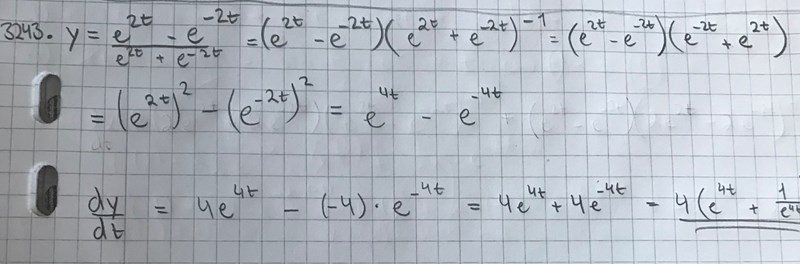 3243. y = (e^{2t} - e^{-2t})/(e^{2t} + e^{-2t}) = (e^{2t} - e^{-2t})(e^{2t} + e^{-2t})^{-1} = (e^{2t} - e^{-2t})(e^{-2t} + e^{2t})
= (e^{2t})^2 - (e^{-2t})^2 = e^{4t} - e^{-4t}
dy/dt = 4e^{4t} - (-4) · e^{-4t} = 4e^{4t} + 4e^{-4t} = 4(e^{4t} + 1/e^{4t}